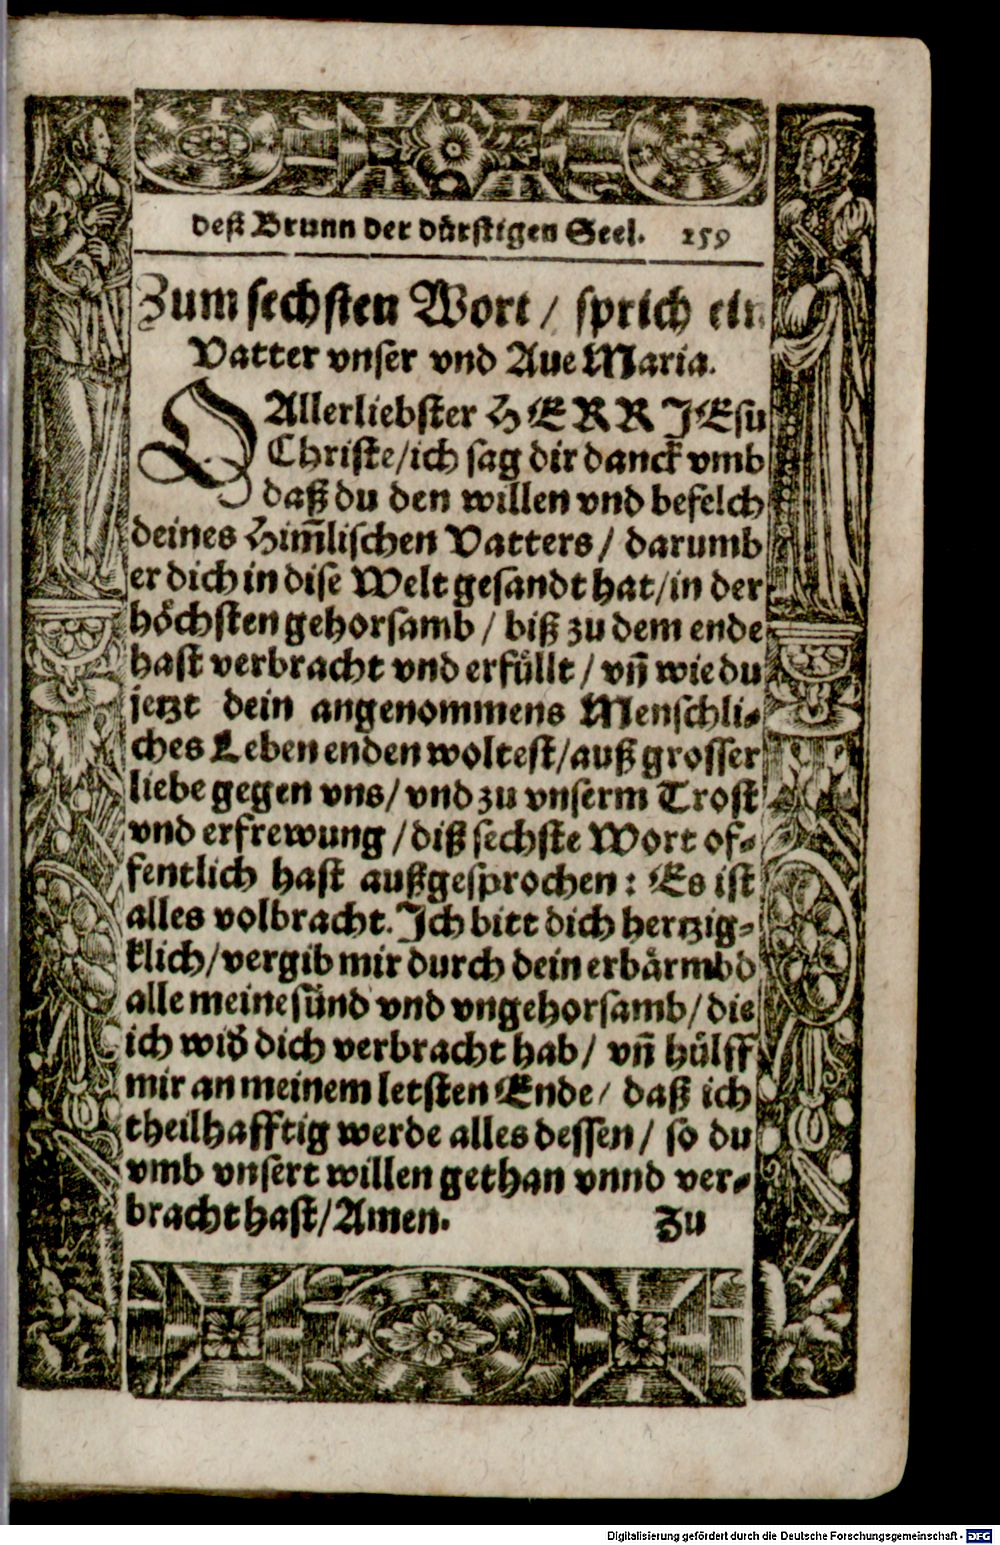 deß Brunn der dürstigen Seel. 159
Zum sechsten Wort / sprich ein
Vatter vnser vnd Aue Maria.
O Allerliebster HERR JEsu
Christe/ich sag dir danck vmb
daß du den willen vnd befelch
deines Him̃lischen Vatters / darumb
er dich in dise Welt gesandt hat/in der
höchsten gehorsamb / biß zu dem ende
hast verbracht vnd erfüllt / vñ wie du
jetzt dein angenommens Menschli⸗
ches Leben enden woltest/auß grosser
liebe gegen vns/ vnd zu vnserm Trost
vnd erfrewung /diß sechste Wort of⸗
fentlich hast außgesprochen: Es ist
alles volbracht. Jch bitt dich hertzig⸗
klich/vergib mir durch dein erbärmbd
alle meine sünd vnd vngehorsamb/ die
ich wid̃ dich verbracht hab/ vñ hülff
mir an meinem letsten Ende/ daß ich
theilhafftig werde alles dessen/ so du
vmb vnsert willen gethan vnnd ver⸗
bracht hast/Amen. Zu
Digitalisierung gefördert durch die Deutsche Forschungsgemeinschaft - DFG